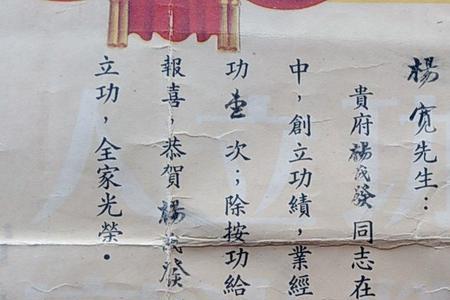 楊寬先生：
貴府楊茂發同志在
中，創立功績，業經
功壹次；除按功給
報喜，恭賀楊茂發
立功，全家光榮。